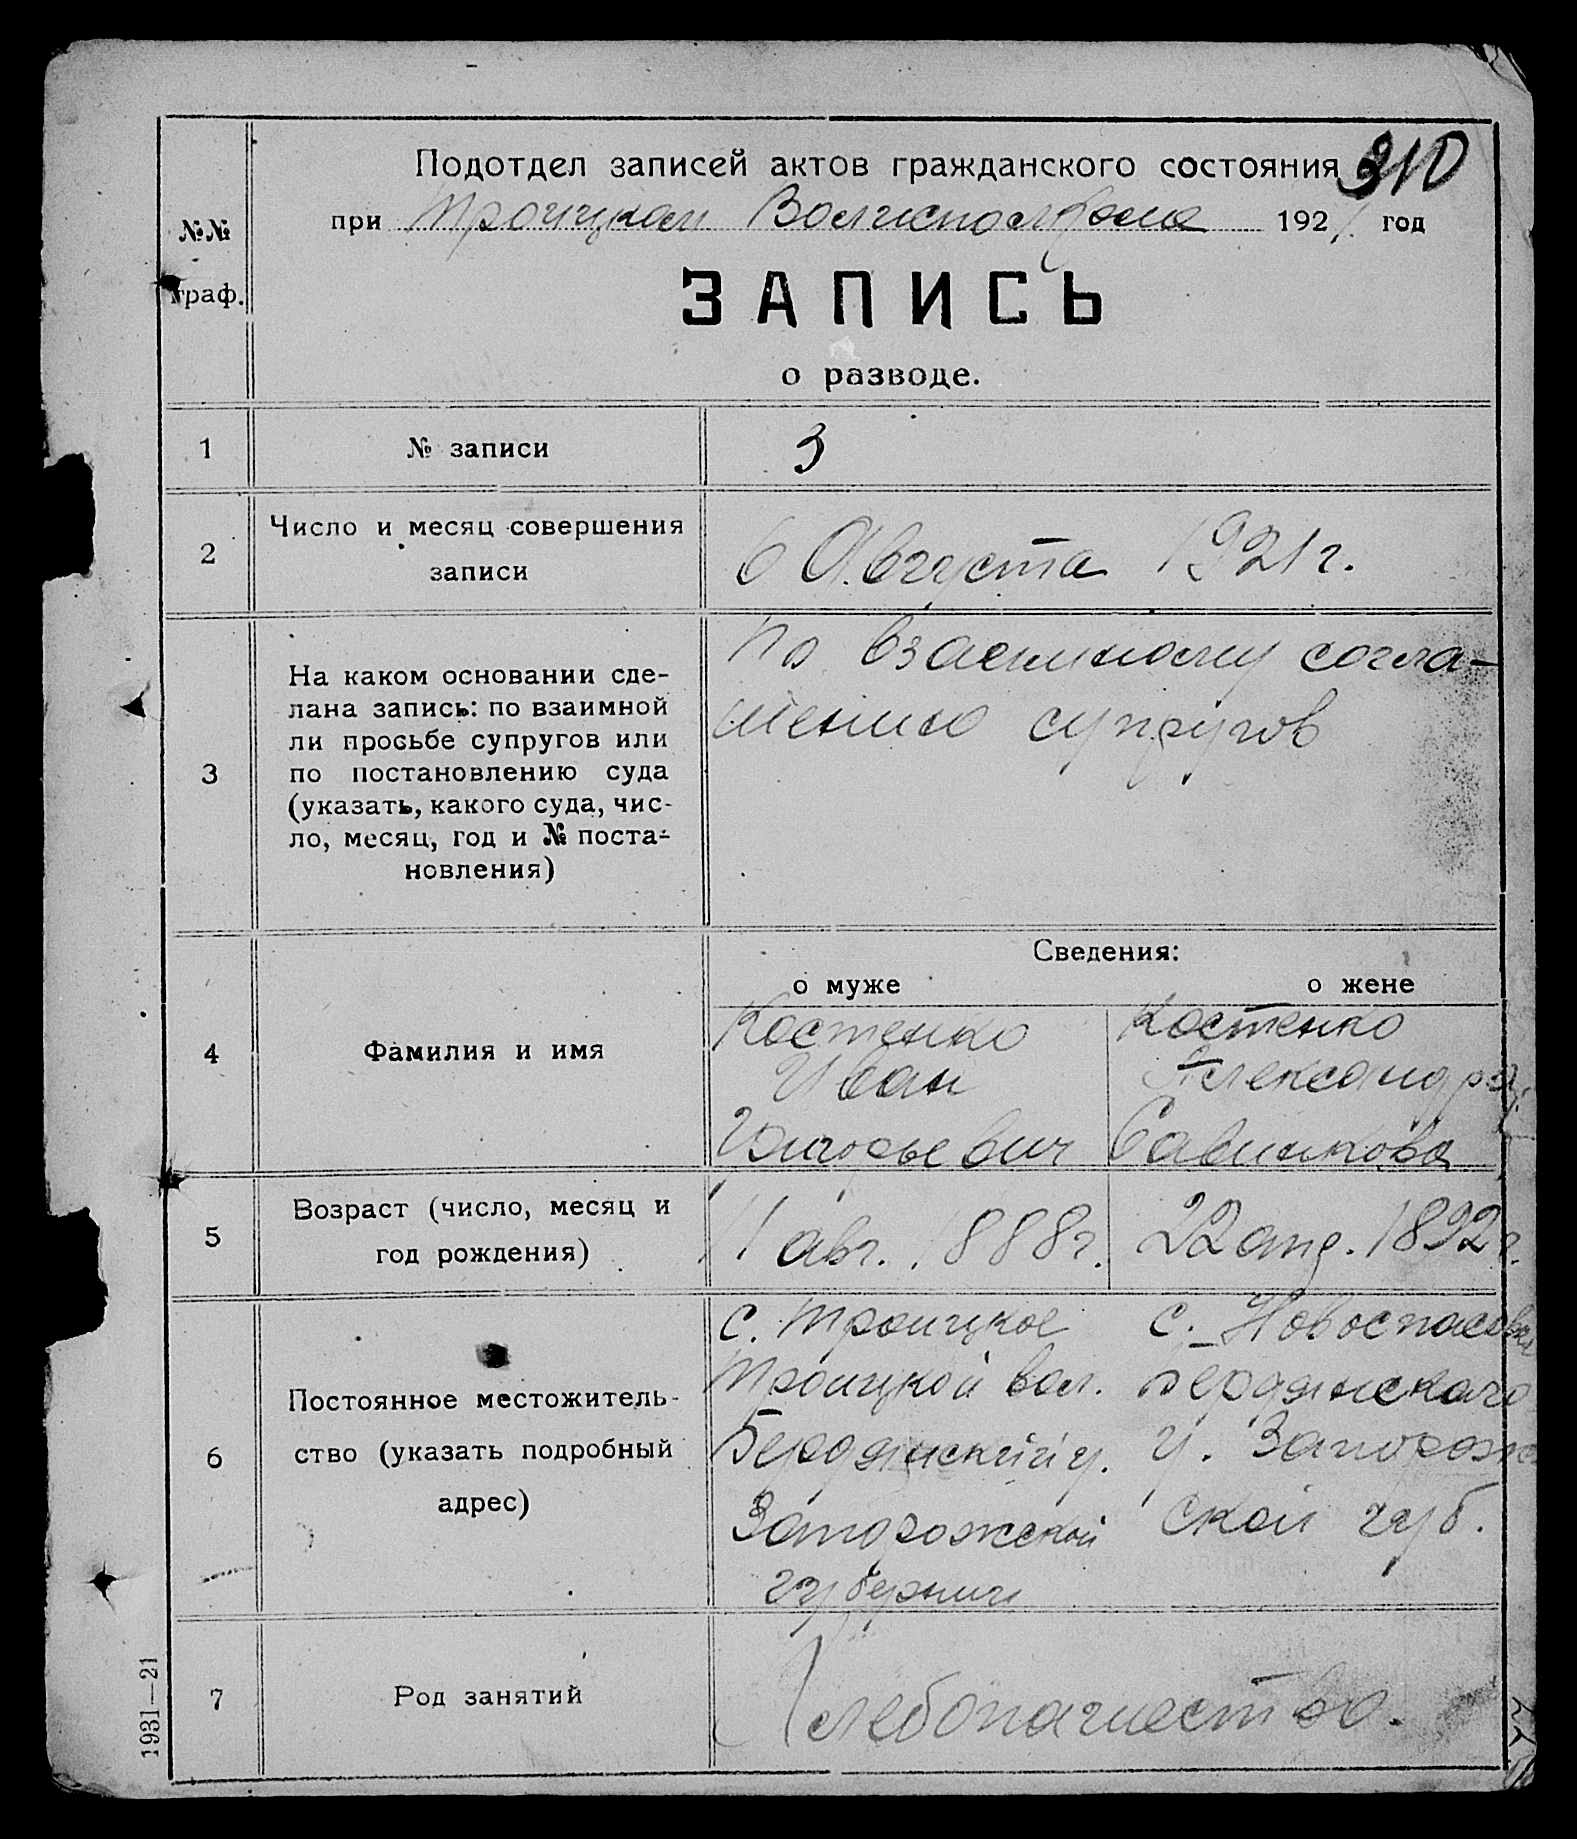 Подотдел записей актов гражданского состояния 310
при Троицкой Волисполкоме 1921 год
№№ граф.
ЗАПИСЬ
о разводе.
1 № записи 3
2 Число и месяц совершения записи
6 Августа 1921 г.
3 На каком основании сде-
лана запись: по взаимной
ли просьбе супругов или
по постановлению суда
(указать, какого суда, чис-
ло, месяц, год и № поста-
новления)
По взаемному согла-
шению супругов
Сведения:
о муже о жене
4 Фамилия и имя
Костенко
Иван
Григорьевич
Костенко
Александра
Савинкова
5 Возраст (число, месяц и
год рождения)
11 авг. 1888 г. 22 апр. 1892 г.
6 Постоянное местожитель-
ство (указать подробный
адрес)
с. Троицкое
Троицкой вол.
Бердянский у.
Запорожской
губернии
с. Новоспасовка
Бердянского
у. Запорож
ской губ.
7 Род занятий
Хлебопашество.
1931—21